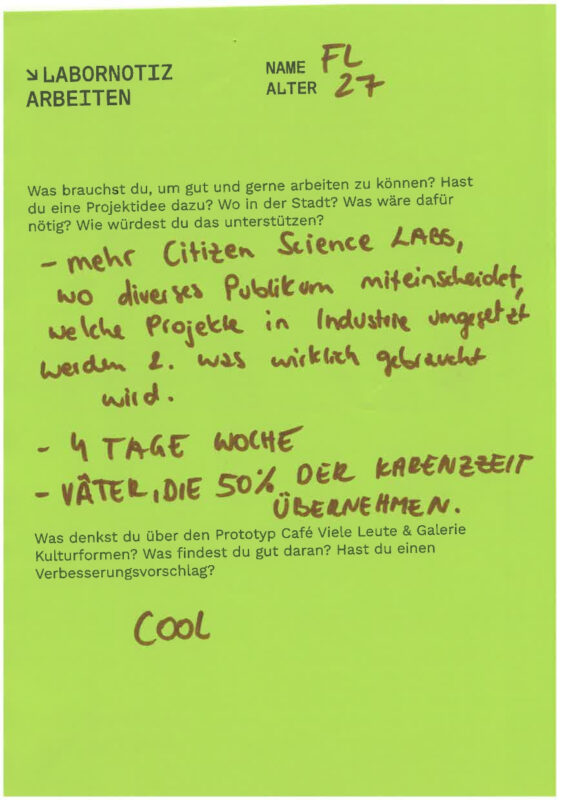 ↘ LABORNOTIZ
ARBEITEN
NAME FL
ALTER 27
Was brauchst du, um gut und gerne arbeiten zu können? Hast
du eine Projektidee dazu? Wo in der Stadt? Was wäre dafür
nötig? Wie würdest du das unterstützen?
- mehr Citizen Science LABS,
wo diverses Publikum miteinscheidet,
welche Projekte in Industrie umgesetzt
werden 2. was wirklich gebraucht
wird.
- 4 TAGE WOCHE
- VÄTER, DIE 50% DER KARENZZEIT
ÜBERNEHMEN.
Was denkst du über den Prototyp Café Viele Leute & Galerie
Kulturformen? Was findest du gut daran? Hast du einen
Verbesserungsvorschlag?
COOL